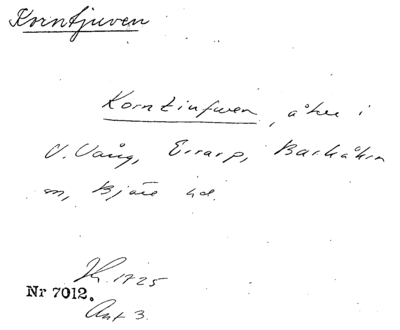 Korntjuven
Korntiufwen, åker i
V. Vång, Errarp, Barkåkra
sn, Bjäre hd.
1725
Nr 7012.
Akt 3.